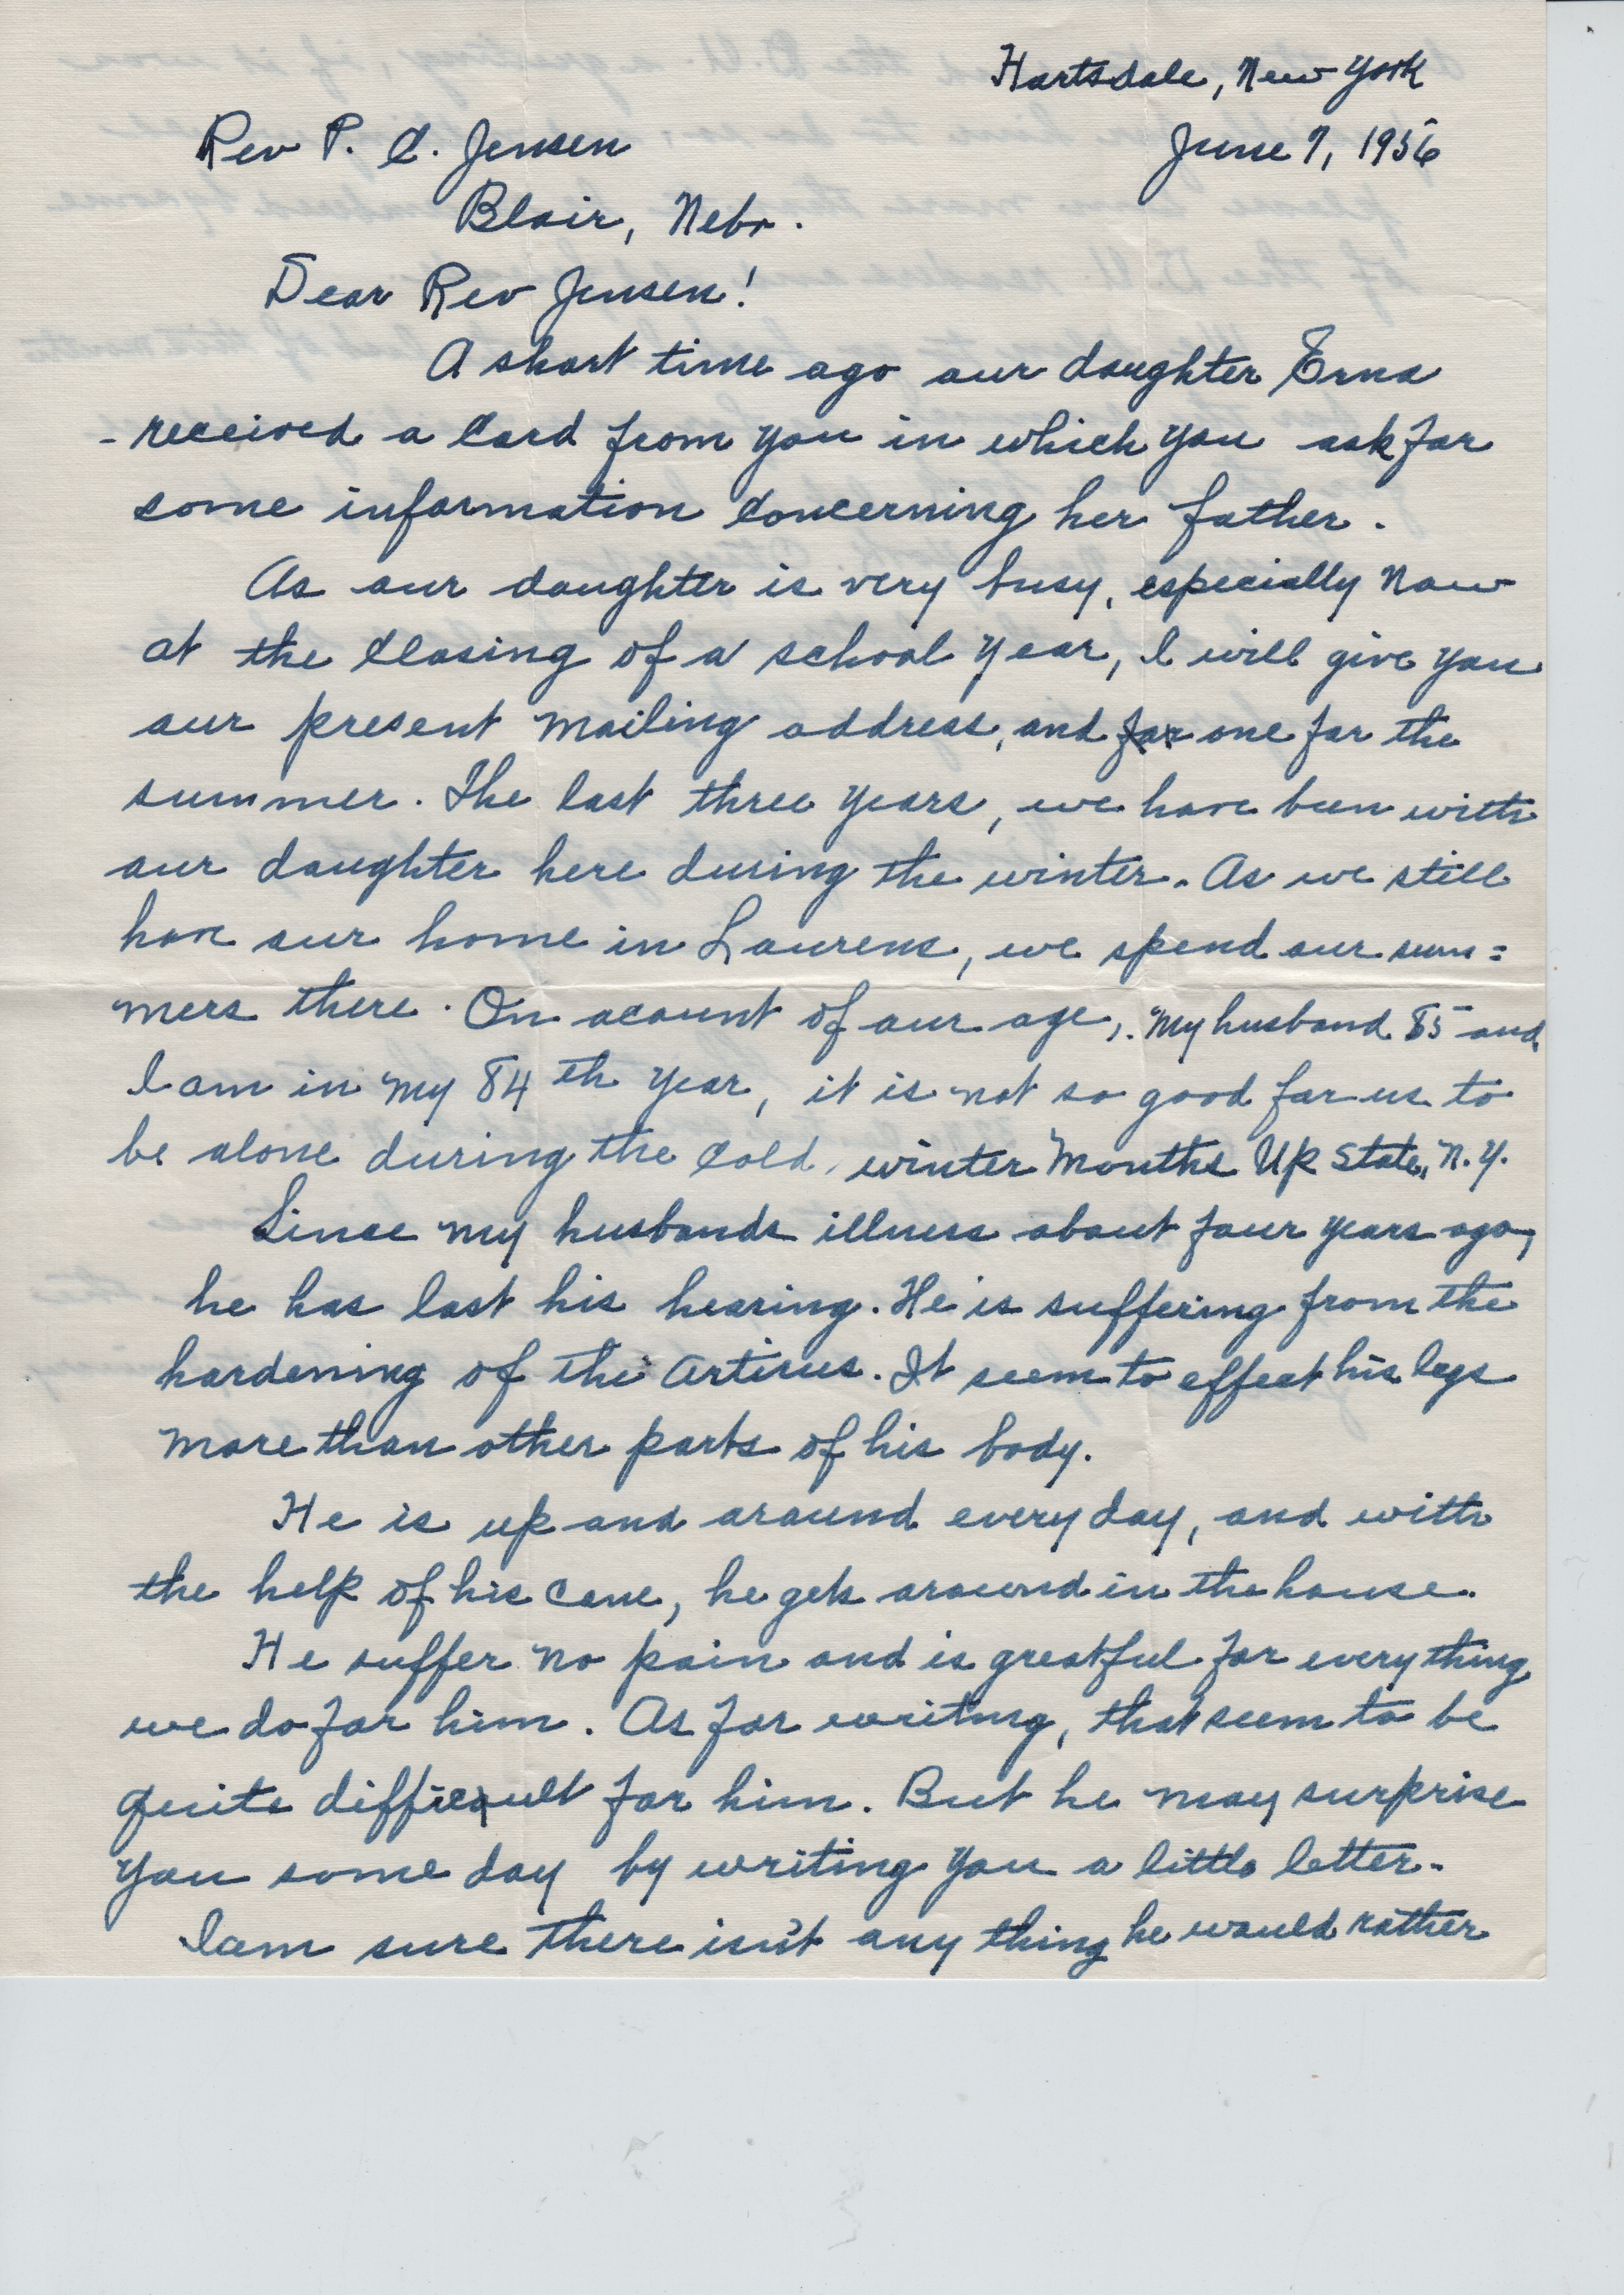 Hartsdale, New York
Rev P. C. Jensen
June 7, 1956
Blair, Nebr.
Dear Rev Jensen!
A short time ago our daughter Erna
- received a Card from you in which you ask for
some information Concerning her father.
As our daughter is very busy, especially now
at the Closing of a school year, I will give you
our present mailing address, and for one for the
summer. The last three years, we have been with
our daughter here during the winter. As we still
have our home in Laurens, we spend our sum=
mers there. On acount of our age, My husband 85 and
I am in my 84 th year, it is not so good for us to
be alone during the Cold, winter months Up State, N.Y.
Since my husbands illness about four years ago,
he has lost his hearing. He is suffering from the
hardening of the Artiries. It seem to effect his legs
more than other parts of his body.
He is up and around every day, and with
the help of his Cane, he gets around in the house.
He suffer no pain and is greatful for every thing
we do for him. As for writing, that seem to be
quite difficult for him. But he may surprise
you some day by writing you a little letter.
I am sure there isn't any thing he would rather